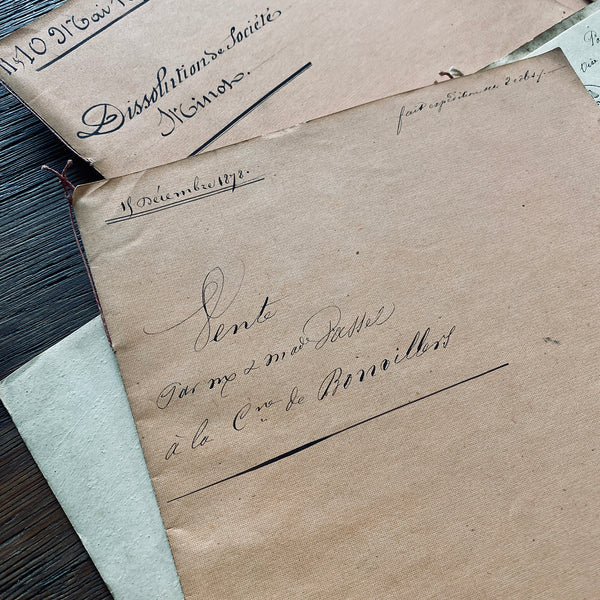 10 Mai
Dissolution de Société
Minot.
fait expédition
15 Décembre 1878.
Vente
Par mr & made Passez
à la Cne de Bonvillers